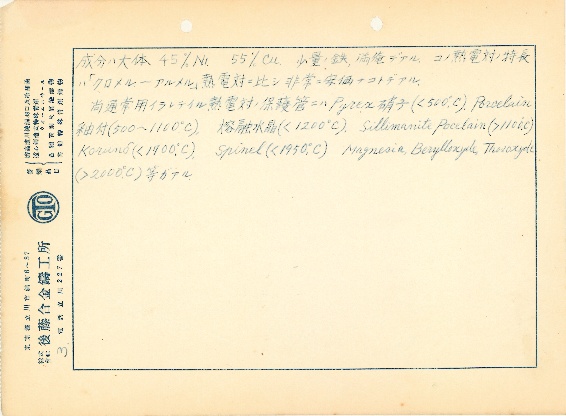 成分ハ大体 45% Ni 55% Cu 少量ノ鉄、満俺デアル コノ熱電対ノ特長
ハ「クロメル—アルメル」熱電対ニ比シ非常ニ安価ナコトデアル.
尚通常用イラレテイル熱電対ノ保護管ニハ Pyrex 硝子 (<500°C), Porcelain
釉付 (500~1100°C), 熔融水晶 (<1200°C), Sillimanite Porcelain (>1100°C)
Korund (<1900°C), Spinel (<1950°C) Magnesia, Berylloxyde, Thoroxyde
(>2000°C) 等ガアル
GTO
株式会社 後藤合金鋳工所
電話立川 227番
3.